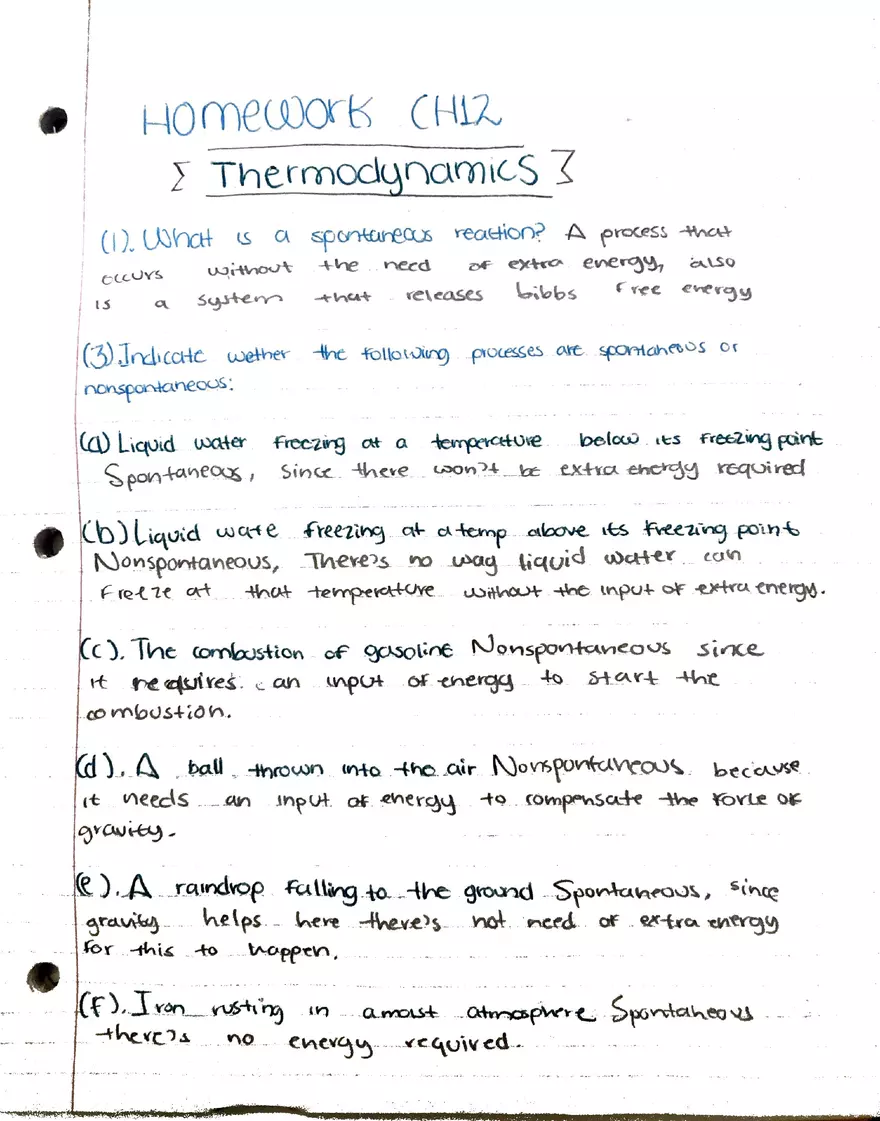 Homework CH12
{ Thermodynamics }
(1). What is a spontaneous reaction? A process that
occurs without the need of extra energy, also
is a system that releases Gibbs free energy
(3). Indicate wether the following processes are spontaneous or
nonspontaneous:
(a) Liquid water freezing at a temperature below its freezing point
Spontaneous, since there won't be extra energy required
(b) Liquid wate freezing at a temp above its freezing point
Nonspontaneous, There's no way liquid water can
freeze at that temperature without the input of extra energy.
(c). The combustion of gasoline Nonspontaneous since
it requires an input of energy to start the
combustion.
(d). A ball thrown into the air Nonspontaneous because
it needs an input of energy to compensate the force of
gravity.
(e). A raindrop falling to the ground Spontaneous, since
gravity helps here there's not need of extra energy
for this to happen.
(f). Iron rusting in a moist atmosphere Spontaneous
there's no energy required.